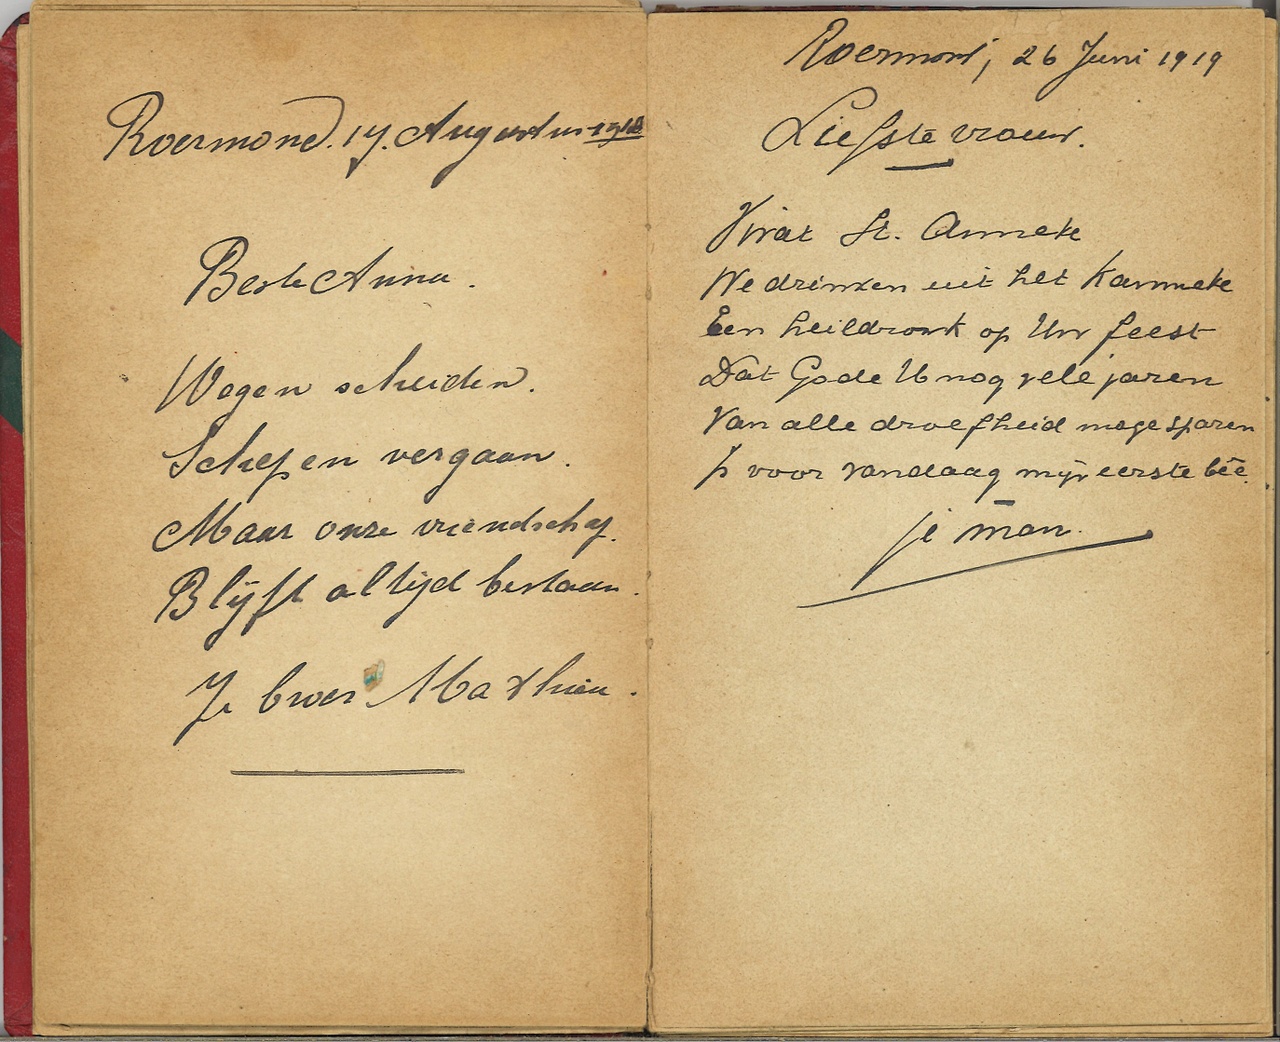 Roermond. 17. Augustus 1918
Beste Anna.
Wegen scheiden.
Schepen vergaan.
Maar onze vriendschap.
Blijft altijd bestaan.
Je broer Mathieu.
Roermond, 26 Juni 1919
Liefste vrouw.
Vivat St. Anneke
We drinken uit het Kanneke
Een heildronk op Uw feest
Dat Gode U nog vele jaren
Van alle droefheid moge sparen
Is voor vandaag mijn eerste beê.
je man.